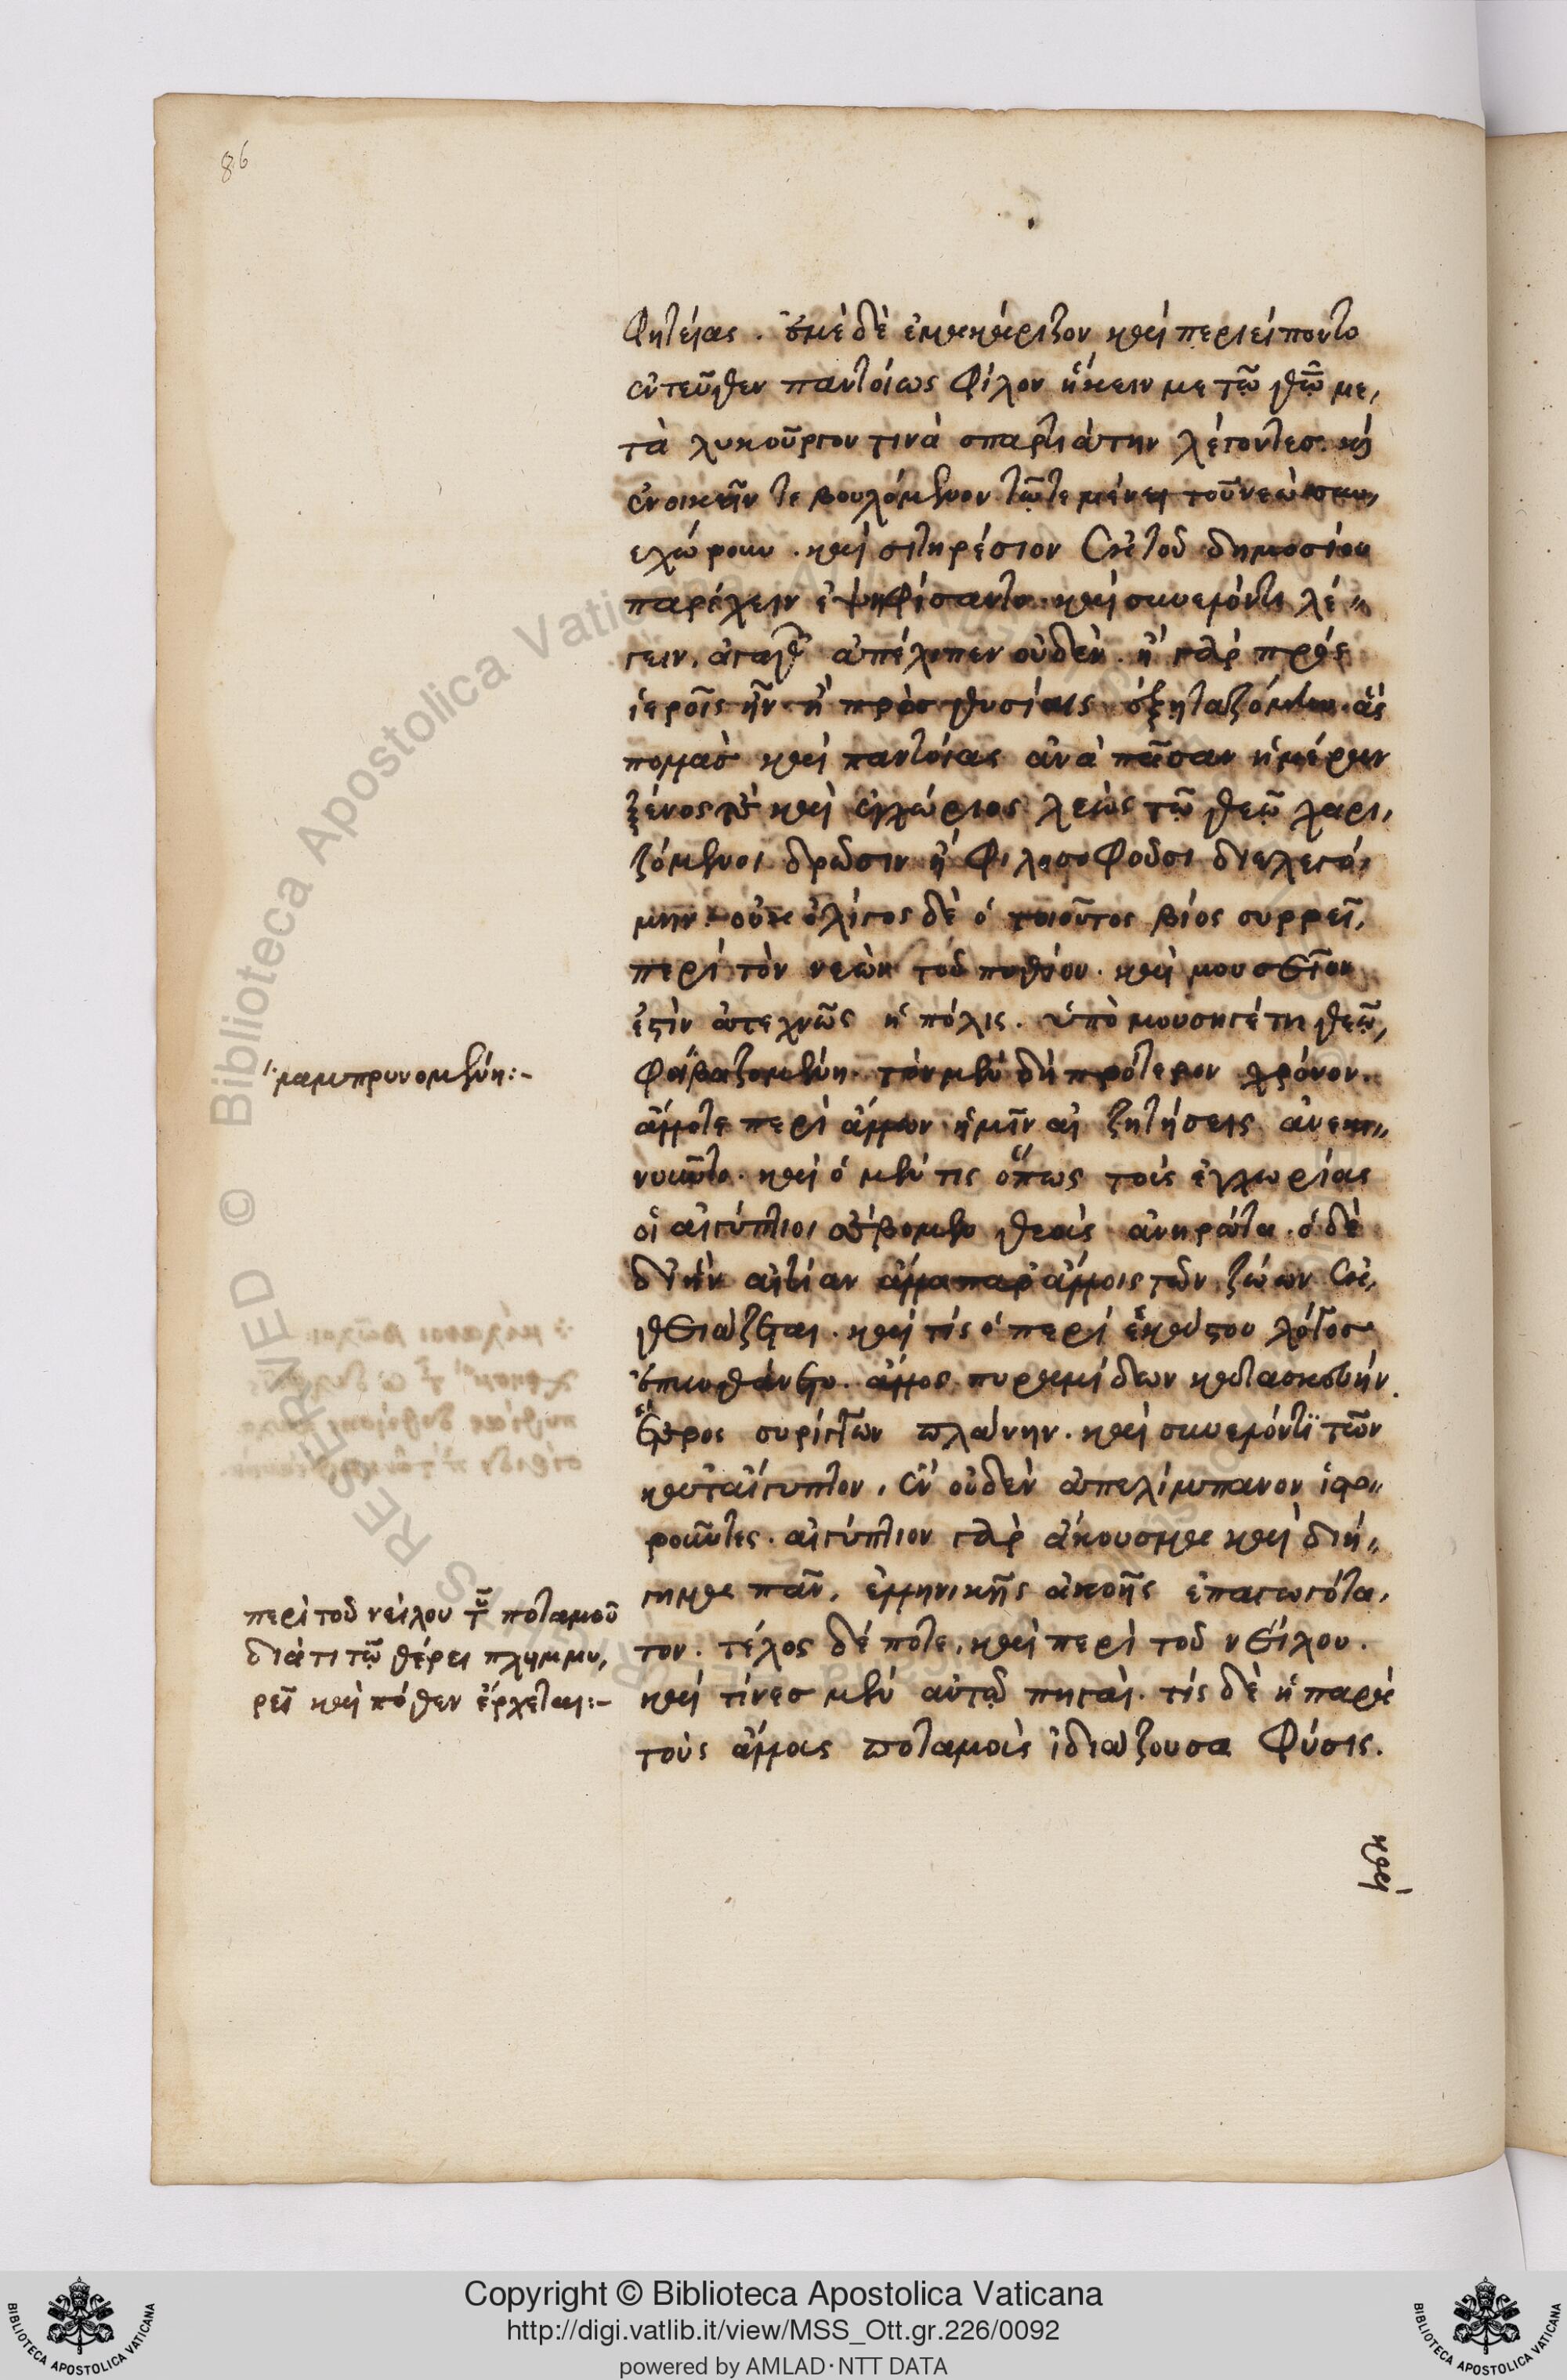 86
φητείας. ἐμὲ δὲ ἐμακάριζον καὶ περιείποντο
ἐντεῦθεν παντοίως φίλον ἥκειν με τῷ θεῷ με,
τὰ λυκοῦργον τινὰ σπαρτιάτην λέγοντες. καὶ
ἐνοικεῖν τε βουλόμενον τῷ τεμένει τοῦ νεὼ συν,
εχώρουν. καὶ σιτηρέσιον ἐκ τοῦ δημοσίου
παρέχειν ἐψηφίσαντο. καὶ συνελόντι λέ,,
γειν, ἀγαθῶν ἀπέλιπεν οὐδέν. ἢ γὰρ πρὸς
ἱεροῖς ἦν ἢ πρὸς θυσίαις ἐξηταζόμην ἃς
πολλὰς καὶ παντοίας ἀνὰ πᾶσαν ἡμέραν
ξένος τὲ καὶ ἐγχώριος λεὼς τῷ θεῷ χαρι,
ζόμενοι δρῶσιν ἢ φιλοσοφοῦσι διελεγό,
μην. οὐκ ὀλίγος δὲ ὁ τοιοῦτος βίος συρρεῖ,
περὶ τὸν νεὼν τοῦ πυθίου. καὶ μουσεῖον
ἐστὶν ἀτεχνῶς ἡ πόλις. ὑπὸ μουσηγέτῃ θεῷ,
φοιβαζομένη. τὸν μὲν δὴ πρότερον χρόνον.
ἄλλοτε περὶ ἄλλων ἡμῖν αἱ ζητήσεις ἀνεκι,,
νοῦντο. καὶ ὁ μέν τις ὅπως τοὺς ἐγχωρίους
οἱ αἰγύπτιοι σέβομεν θεοὺς ἀνηρώτα. ὁ δὲ
δι' ἣν αἰτίαν ἄλλα παρ' ἄλλοις τῶν ζώων ἐκ,
θειάζεται. καὶ τίς ὁ περὶ ἑκάστου λόγος
ἐπυνθάνετο. ἄλλος πυραμίδων κατασκευήν.
ἕτερος συρίγγων πλάνην. καὶ συνελόντι τῶν
κατ' αἴγυπτον, ἓν οὐδὲν ἀπελίμπανον ἱστο,,
ροῦντες. αἰγύπτιον γὰρ ἄκουσμα καὶ διή,,
γημα πᾶν, ἑλληνικῆς ἀκοῆς ἐπαγωγότα,
τον. τέλος δέ ποτε, καὶ περὶ τοῦ νείλου.
καὶ τίνες μὲν αὐτῷ πηγαί. τίς δὲ ἡ παρὰ
τοὺς ἄλλους ποταμοὺς ἰδιάζουσα φύσις.
καὶ
λαμπρυνομένη:-
περὶ τοῦ νείλου τοῦ ποταμοῦ
διὰ τί τῷ θέρει πλημμυ,
ρεῖ καὶ πόθεν ἔρχεται:-
RESERVED © Biblioteca Apostolica Vaticana
BIBLIOTECA APOSTOLICA VATICANA
Copyright © Biblioteca Apostolica Vaticana
http://digi.vatlib.it/view/MSS_Ott.gr.226/0092
powered by AMLAD·NTT DATA
BIBLIOTECA APOSTOLICA VATICANA